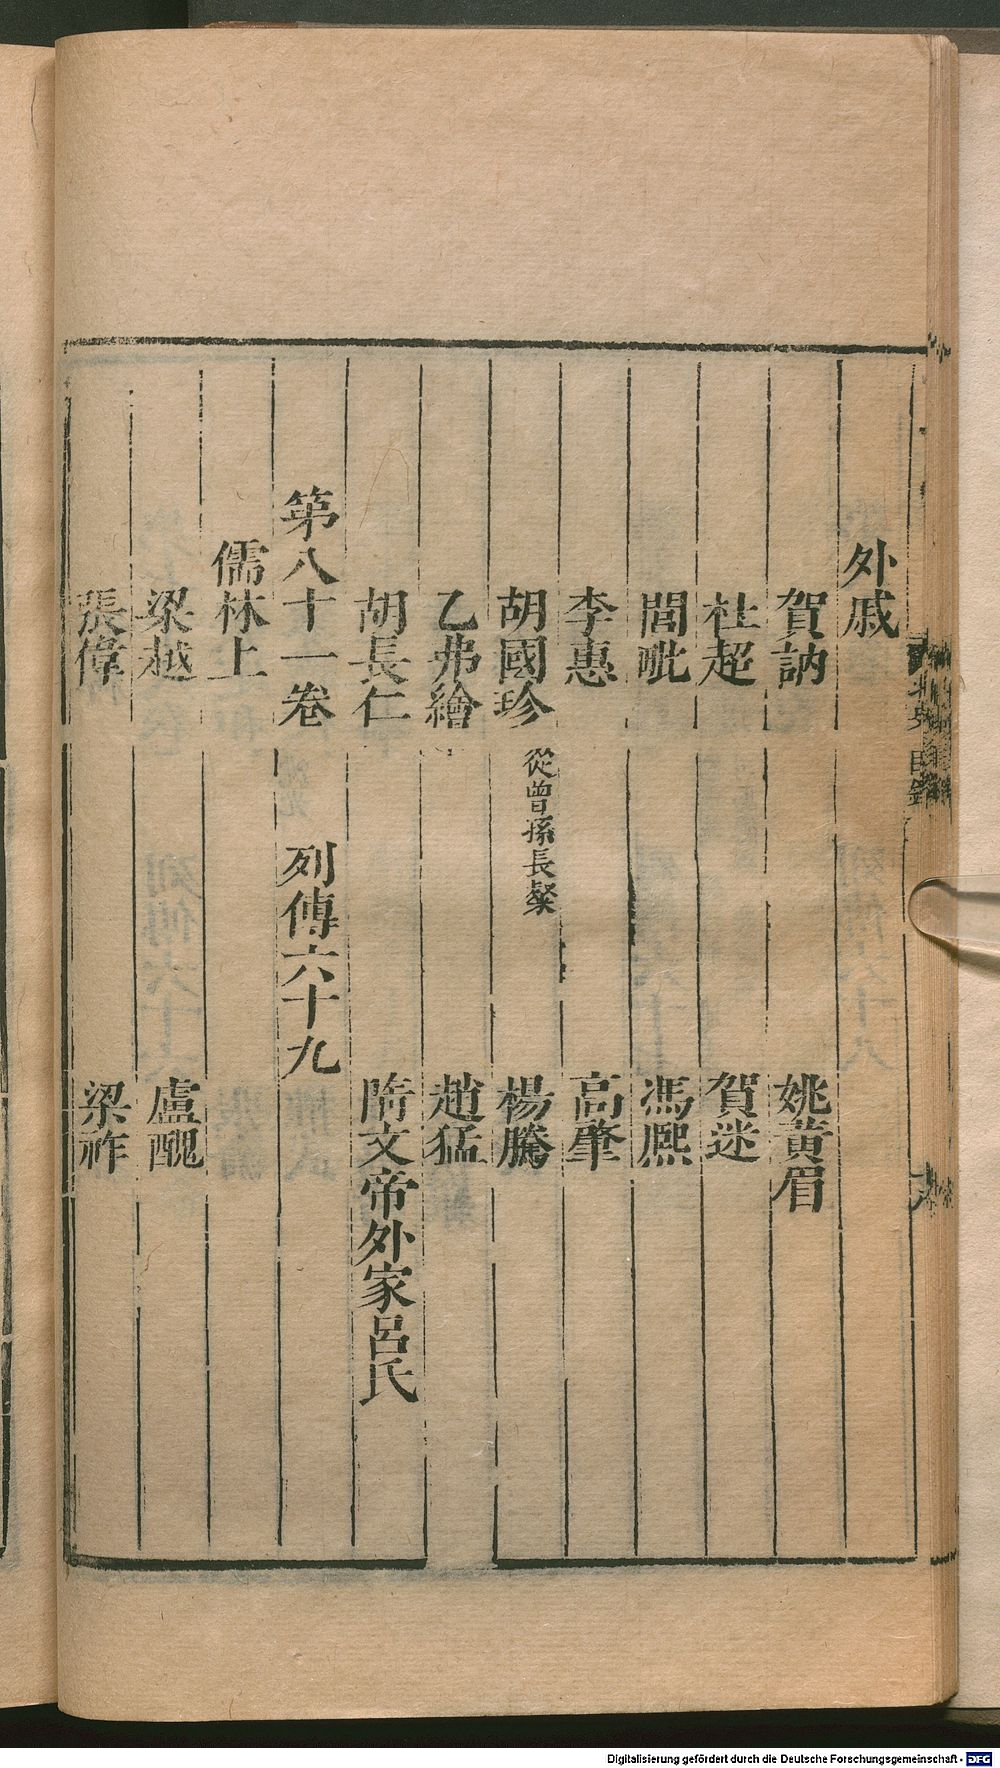 外戚
賀訥 姚黃眉
杜超 賀迷
閭毗 馮熈
李惠 高肇
胡國珍 從曾孫長粲 楊騰
乙弗繪 趙猛
胡長仁 隋文帝外家呂氏
第八十一卷 列傳六十九
儒林上
梁越 盧醜
張偉 梁祚
北史目錄
Digitalisierung gefördert durch die Deutsche Forschungsgemeinschaft - DFG